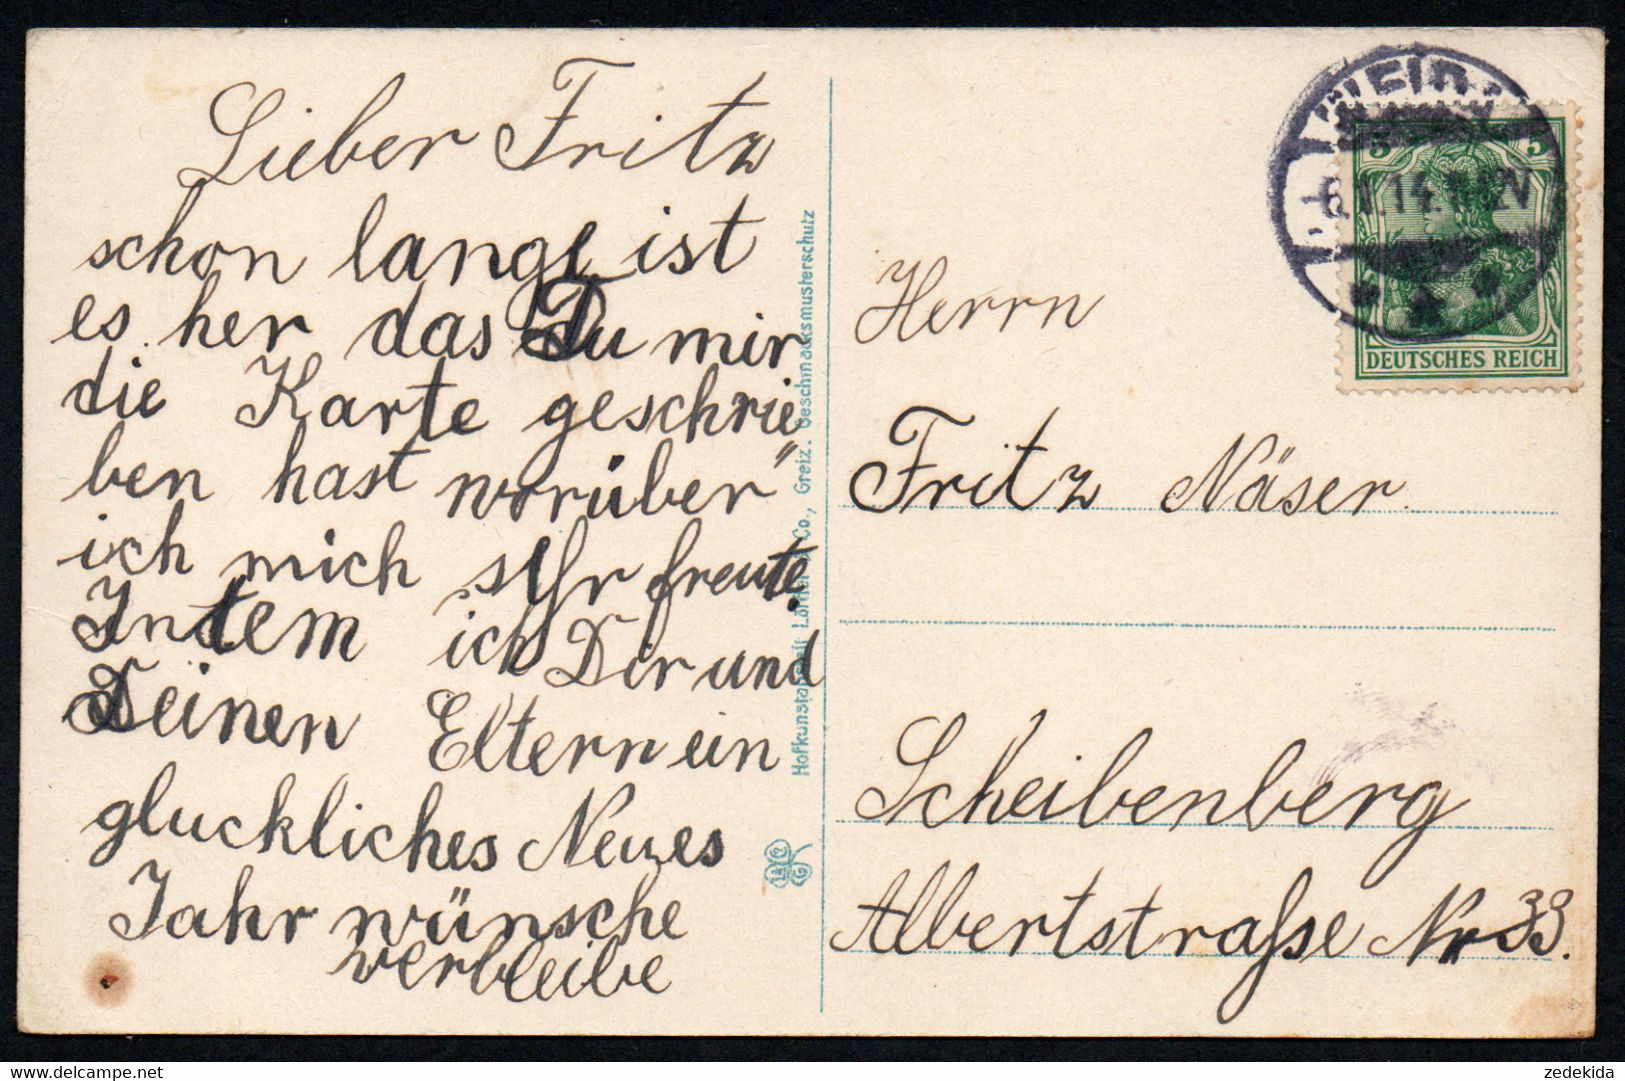 Lieber Fritz
schon lange ist
es her das Du mir
die Karte geschrie
ben hast worüber"
ich mich sehr freute.
Indem ich Dir und
Deinen Eltern ein
gluckliches Neues
Jahr wünsche
verbleibe
Geschmacksmusterschutz
Co., Greiz.
5 5
1.14.
DEUTSCHES REICH
Herrn
Fritz Näser.
Scheibenberg
Albertstraſse Nr 33.
delcampe.net
zedekida